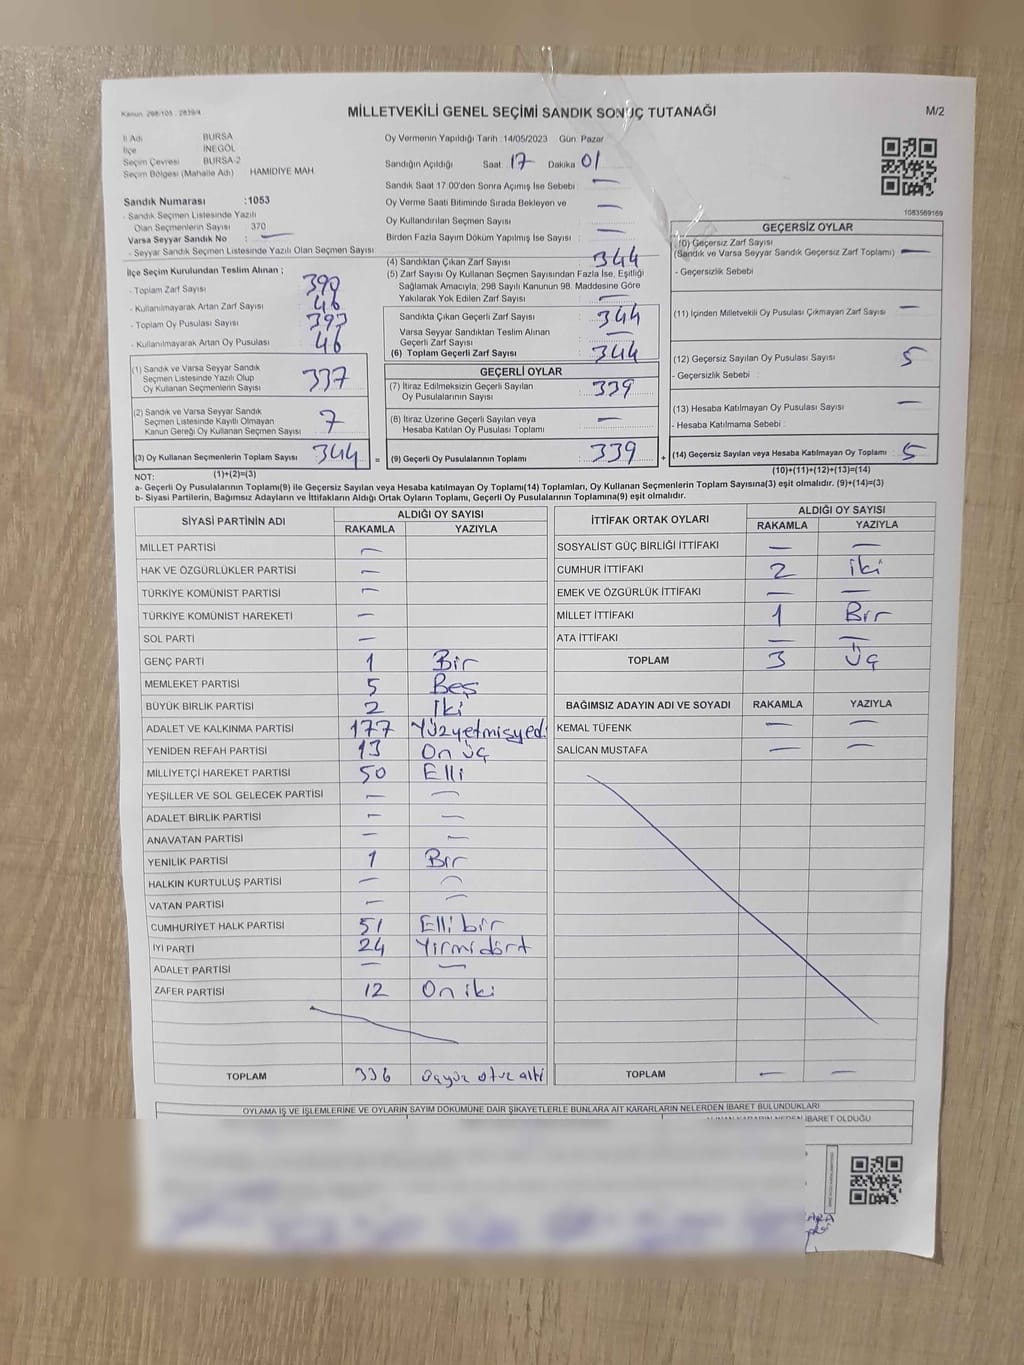 Kanun: 298/105 : 2839/4
MİLLETVEKİLİ GENEL SEÇİMİ SANDIK SONUÇ TUTANAĞI
M/2
İl Adı BURSA
İlçe İNEGÖL
Seçim Çevresi BURSA-2
Seçim Bölgesi (Mahalle Adı) HAMIDIYE MAH.
Sandık Numarası :1053
- Sandık Seçmen Listesinde Yazılı
Olan Seçmenlerin Sayısı 370
Varsa Seyyar Sandık No : —
- Seyyar Sandık Seçmen Listesinde Yazılı Olan Seçmen Sayısı:
İlçe Seçim Kurulundan Teslim Alınan ;
- Toplam Zarf Sayısı : 390
- Kullanılmayarak Artan Zarf Sayısı : 46
- Toplam Oy Pusulası Sayısı : 393
- Kullanılmayarak Artan Oy Pusulası 46
(1) Sandık ve Varsa Seyyar Sandık
Seçmen Listesinde Yazılı Olup
Oy Kullanan Seçmenlerin Sayısı : 337
(2) Sandık ve Varsa Seyyar Sandık
Seçmen Listesinde Kayıtlı Olmayan
Kanun Gereği Oy Kullanan Seçmen Sayısı : 7
(3) Oy Kullanan Seçmenlerin Toplam Sayısı : 344
(1)+(2)=(3)
Oy Vermenin Yapıldığı Tarih : 14/05/2023 Gün: Pazar
Sandığın Açıldığı Saat: 17 Dakika: 01
Sandık Saat 17.00'den Sonra Açımış İse Sebebi : —
Oy Verme Saati Bitiminde Sırada Bekleyen ve
Oy Kullandırılan Seçmen Sayısı : —
Birden Fazla Sayım Döküm Yapılmış İse Sayısı : —
(4) Sandıktan Çıkan Zarf Sayısı : 344
(5) Zarf Sayısı Oy Kullanan Seçmen Sayısından Fazla İse, Eşitliği
Sağlamak Amacıyla, 298 Sayılı Kanunun 98. Maddesine Göre
Yakılarak Yok Edilen Zarf Sayısı : —
Sandıkta Çıkan Geçerli Zarf Sayısı : 344
Varsa Seyyar Sandıktan Teslim Alınan
Geçerli Zarf Sayısı : —
(6) Toplam Geçerli Zarf Sayısı : 344
GEÇERLİ OYLAR
(7) İtiraz Edilmeksizin Geçerli Sayılan
Oy Pusulalarının Sayısı : 339
(8) İtiraz Üzerine Geçerli Sayılan veya
Hesaba Katılan Oy Pusulası Toplamı : —
= (9) Geçerli Oy Pusulalarının Toplamı : 339
1083569169
GEÇERSİZ OYLAR
(10) Geçersiz Zarf Sayısı
(Sandık ve Varsa Seyyar Sandık Geçersiz Zarf Toplamı) : —
- Geçersizlik Sebebi :
(11) İçinden Milletvekili Oy Pusulası Çıkmayan Zarf Sayısı : —
(12) Geçersiz Sayılan Oy Pusulası Sayısı : 5
- Geçersizlik Sebebi :
(13) Hesaba Katılmayan Oy Pusulası Sayısı : —
- Hesaba Katılmama Sebebi :
+ (14) Geçersiz Sayılan veya Hesaba Katılmayan Oy Toplamı : 5
(10)+(11)+(12)+(13)=(14)
NOT:
a- Geçerli Oy Pusulalarının Toplamı(9) ile Geçersiz Sayılan veya Hesaba katılmayan Oy Toplamı(14) Toplamları, Oy Kullanan Seçmenlerin Toplam Sayısına(3) eşit olmalıdır. (9)+(14)=(3)
b- Siyasi Partilerin, Bağımsız Adayların ve İttifakların Aldığı Ortak Oyların Toplamı, Geçerli Oy Pusulalarının Toplamına(9) eşit olmalıdır.
SİYASİ PARTİNİN ADI ALDIĞI OY SAYISI
RAKAMLA YAZIYLA
MİLLET PARTİSİ —
HAK VE ÖZGÜRLÜKLER PARTİSİ —
TÜRKİYE KOMÜNİST PARTİSİ —
TÜRKİYE KOMÜNİST HAREKETİ —
SOL PARTİ —
GENÇ PARTİ 1 Bir
MEMLEKET PARTİSİ 5 Beş
BÜYÜK BİRLİK PARTİSİ 2 İki
ADALET VE KALKINMA PARTİSİ 177 Yüzyetmişyedi
YENİDEN REFAH PARTİSİ 13 On üç
MİLLİYETÇİ HAREKET PARTİSİ 50 Elli
YEŞİLLER VE SOL GELECEK PARTİSİ — —
ADALET BİRLİK PARTİSİ — —
ANAVATAN PARTİSİ — —
YENİLİK PARTİSİ 1 Bir
HALKIN KURTULUŞ PARTİSİ — —
VATAN PARTİSİ — —
CUMHURİYET HALK PARTİSİ 51 Elli bir
İYİ PARTİ 24 Yirmi dört
ADALET PARTİSİ — —
ZAFER PARTİSİ 12 On iki
TOPLAM 336 üçyüz otuz altı
İTTİFAK ORTAK OYLARI ALDIĞI OY SAYISI
RAKAMLA YAZIYLA
SOSYALIST GÜÇ BİRLİĞİ İTTİFAKI — —
CUMHUR İTTİFAKI 2 iki
EMEK VE ÖZGÜRLÜK İTTİFAKI — —
MİLLET İTTİFAKI 1 Bir
ATA İTTİFAKI — —
TOPLAM 3 Üç
BAĞIMSIZ ADAYIN ADI VE SOYADI RAKAMLA YAZIYLA
KEMAL TÜFENK — —
SALİCAN MUSTAFA — —
TOPLAM — —
OYLAMA İŞ VE İŞLEMLERİNE VE OYLARIN SAYIM DÖKÜMÜNE DAİR ŞİKAYETLERLE BUNLARA AİT KARARLARIN NELERDEN İBARET BULUNDUKLARI
ALINAN KARARIN NEDEN İBARET OLDUĞU